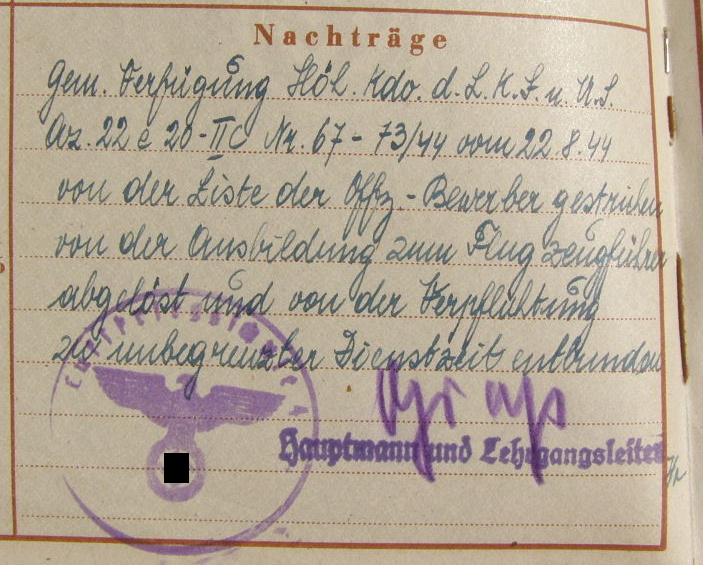 Nachträge
Gem. Verfügung Höh. Kdo. d. L. K. S. u. U.S.
Az. 22 c 20 - II C Nr. 67 - 73/44 vom 22.8.44
von der Liste der Offz - Bewerber gestrichen
von der Ausbildung zum Flugzeugführer
abgelöst und von der Verpflichtung
zu unbegrenzter Dienstzeit entbunden
Hauptmann und Lehrgangsleiter